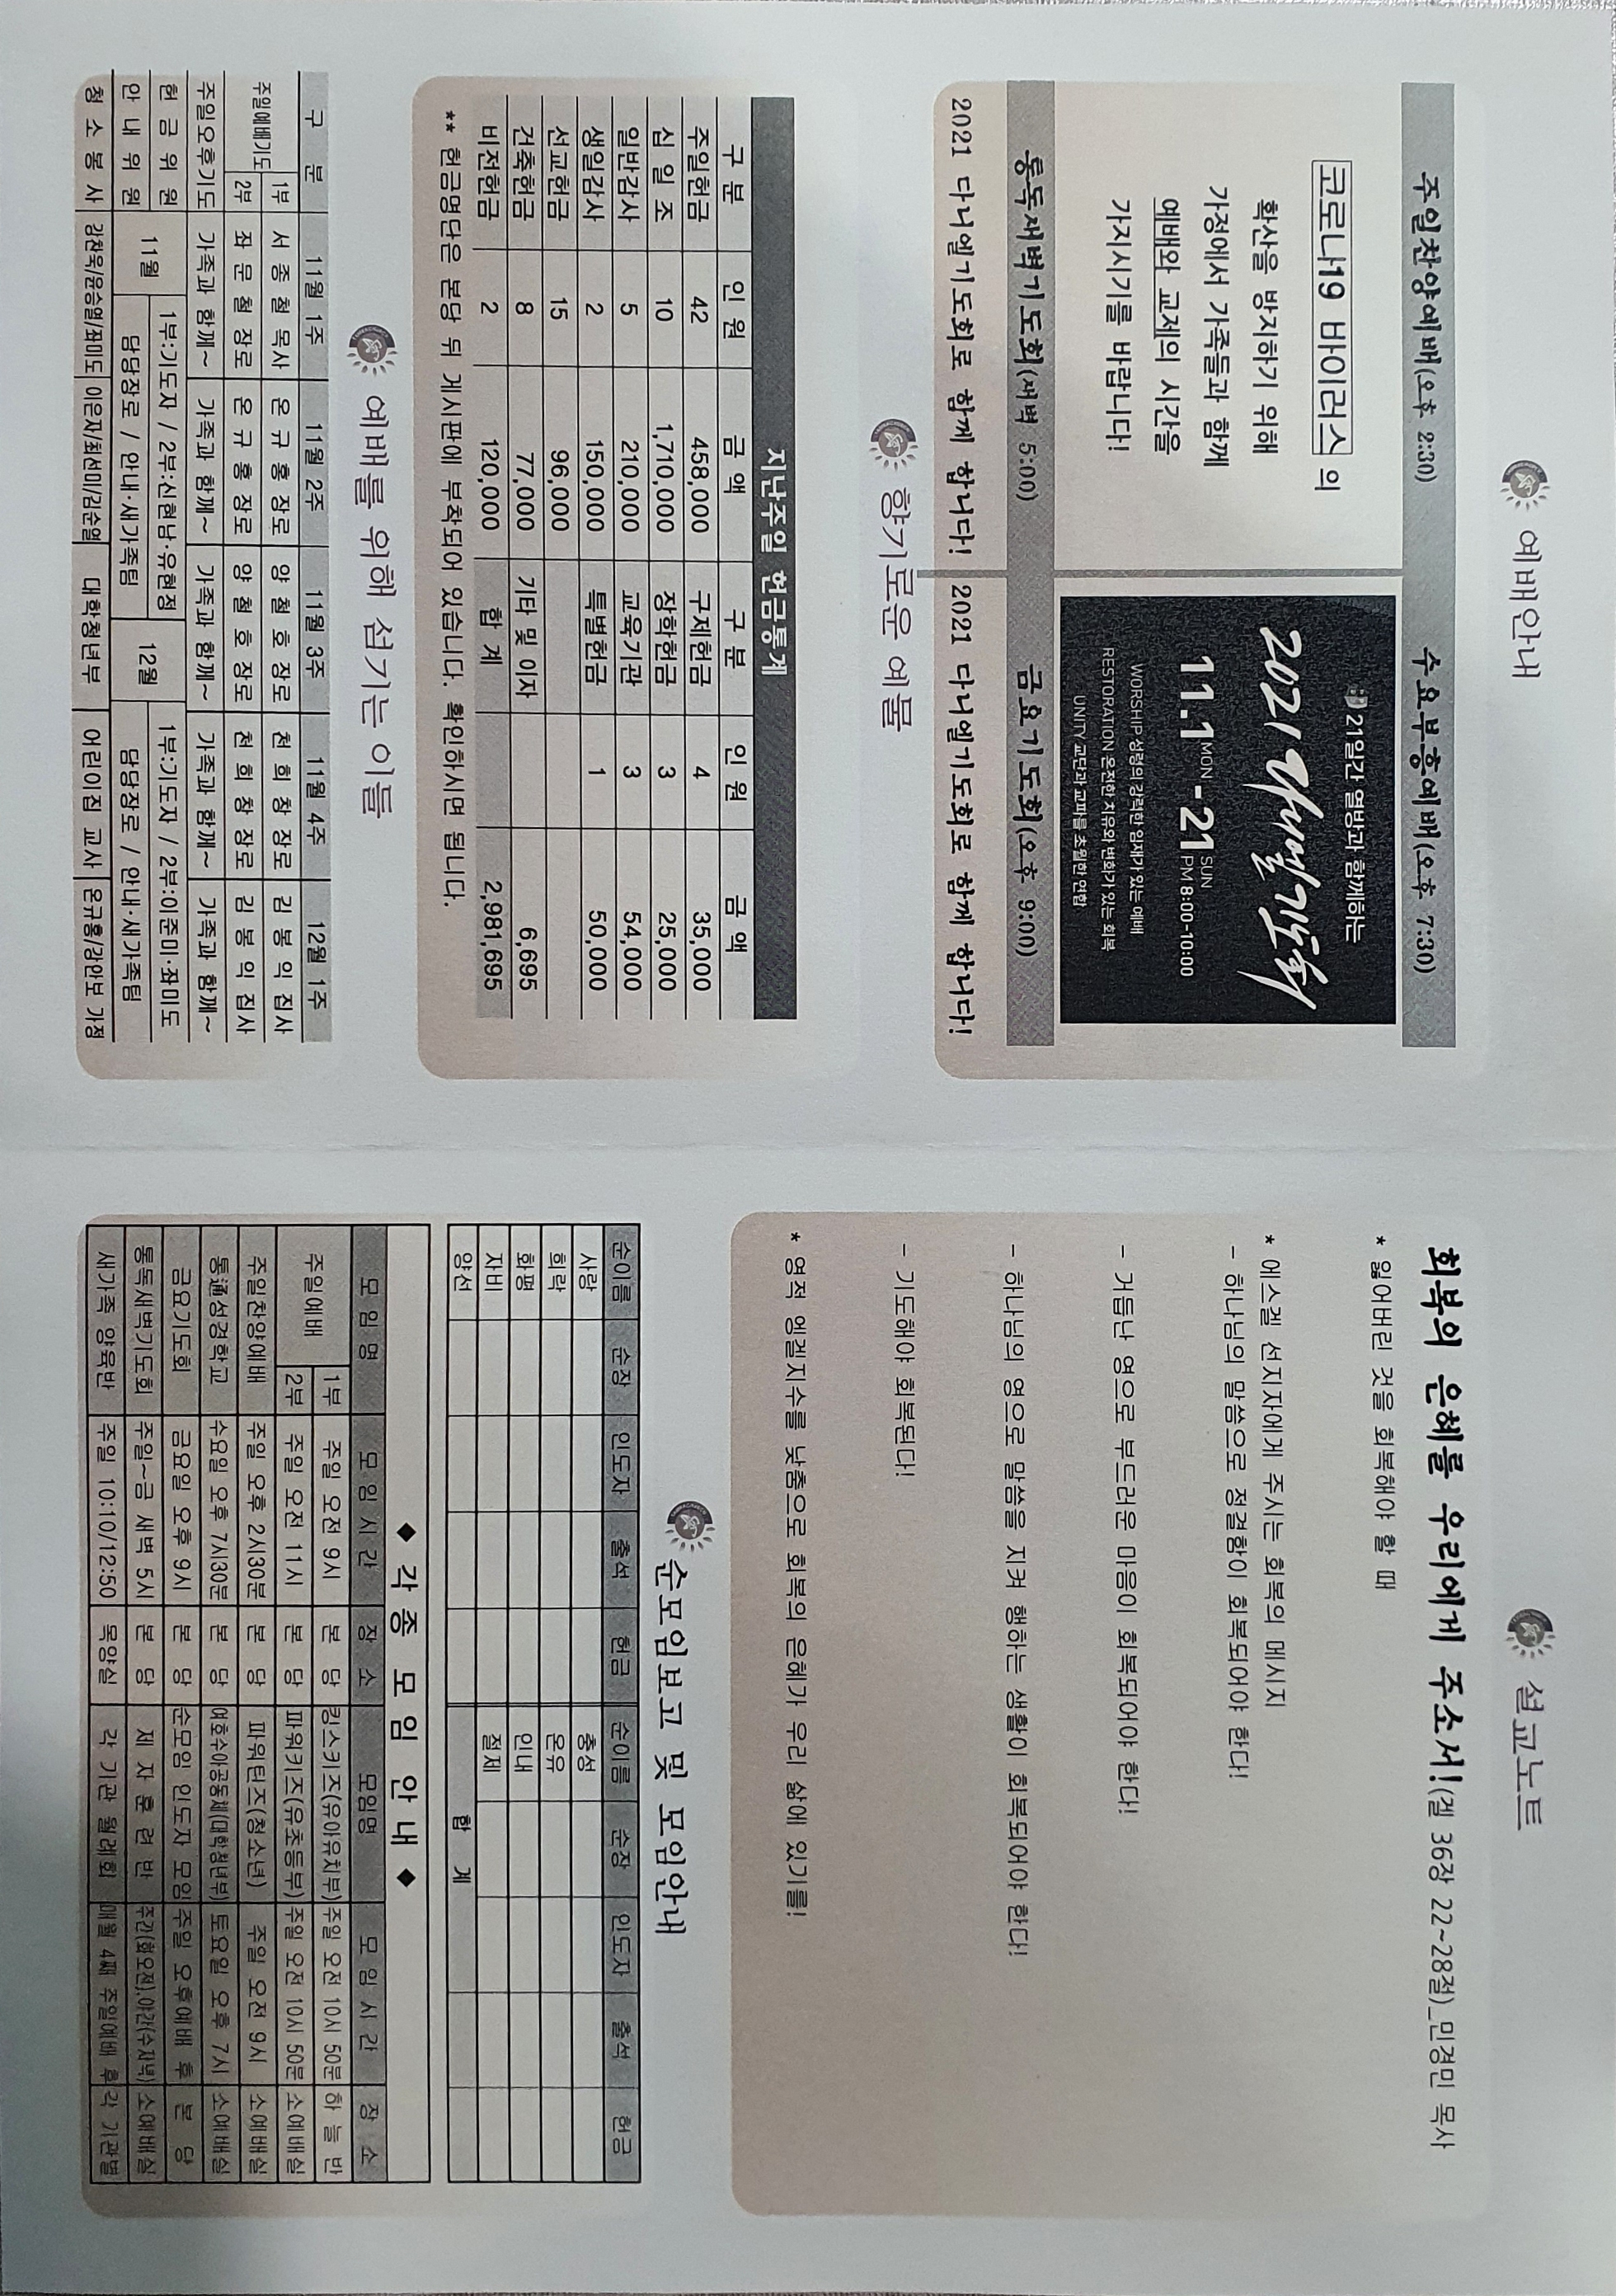 예배안내
주일찬양예배(오후 2:30)
수요부흥예배(오후 7:30)
코로나19 바이러스 의
확산을 방지하기 위해
가정에서 가족들과 함께
예배와 교제의 시간을
가지시기를 바랍니다!
21일간 열방과 함께하는
2021 다니엘기도회
11.1 MON - 21 SUN PM 8:00-10:00
WORSHIP 성령의 강력한 임재가 있는 예배
RESTORATION 온전한 치유와 변화가 있는 회복
UNITY 교단과 교파를 초월한 연합
통독새벽기도회(새벽 5:00)
금요기도회(오후 9:00)
2021 다니엘기도회로 함께 합니다!
2021 다니엘기도회로 함께 합니다!
향기로운 예물
지난주일 헌금통계
구 분 인 원 금 액 구 분 인 원 금 액
주일헌금 42 458,000 구제헌금 4 35,000
십 일 조 10 1,710,000 장학헌금 3 25,000
일반감사 5 210,000 교육기관 3 54,000
생일감사 2 150,000 특별헌금 1 50,000
선교헌금 15 96,000
건축헌금 8 77,000 기타 및 이자 6,695
비전헌금 2 120,000 합 계 2,981,695
** 헌금명단은 본당 뒤 게시판에 부착되어 있습니다. 확인하시면 됩니다.
예배를 위해 섬기는 이들
구 분 11월 1주 11월 2주 11월 3주 11월 4주 12월 1주
주일예배기도 1부 서 종 철 목사 온 규 홍 장로 양 철 호 장로 천 희 창 장로 김 봉 익 집사
2부 좌 문 철 장로 온 규 홍 장로 양 철 호 장로 천 희 창 장로 김 봉 익 집사
주일오후기도 가족과 함께~ 가족과 함께~ 가족과 함께~ 가족과 함께~ 가족과 함께~
헌 금 위 원 11월 1부:기도자 / 2부:신현남·유현정 12월 1부:기도자 / 2부:이준미·좌미도
안 내 위 원 담당장로 / 안내·새가족팀 담당장로 / 안내·새가족팀
청 소 봉 사 강찬욱/윤승열/좌미도 이은자/최선미/김순열 대학청년부 어린이집 교사 온규홍/강안보 가정
설교노트
회복의 은혜를 우리에게 주소서!(겔 36장 22~28절)_민경민 목사
* 잃어버린 것을 회복해야 할 때
* 에스겔 선지자에게 주시는 회복의 메시지
- 하나님의 말씀으로 정결함이 회복되어야 한다!
- 거듭난 영으로 부드러운 마음이 회복되어야 한다!
- 하나님의 영으로 말씀을 지켜 행하는 생활이 회복되어야 한다!
- 기도해야 회복된다!
* 영적 엥겔지수를 낮춤으로 회복의 은혜가 우리 삶에 있기를!
순모임보고 및 모임안내
순이름 순장 인도자 출석 헌금 순이름 순장 인도자 출석 헌금
사랑 충성
희락 온유
화평 인내
자비 절제
양선 합 계
◆ 각 종 모 임 안 내 ◆
모 임 명 모 임 시 간 장 소 모임명 모 임 시 간 장 소
주일예배 1부 주일 오전 9시 본 당 킹스키즈(유아유치부) 주일 오전 10시 50분 하 늘 반
2부 주일 오전 11시 본 당 파워키즈(유초등부) 주일 오전 10시 50분 소예배실
주일찬양예배 주일 오후 2시30분 본 당 파워틴즈(청소년) 주일 오전 9시 소예배실
통通성경학교 수요일 오후 7시30분 본 당 여호수아공동체(대학청년부) 토요일 오후 7시 소예배실
금요기도회 금요일 오후 9시 본 당 순모임 인도자 모임 주일 오후예배 후 본 당
통독새벽기도회 주일~금 새벽 5시 본 당 제 자 훈 련 반 주간(화오전),야간(수저녁) 소예배실
새가족 양육반 주일 10:10/12:50 목양실 각 기관 월례회 매월 4째 주일예배 후 각 기관별